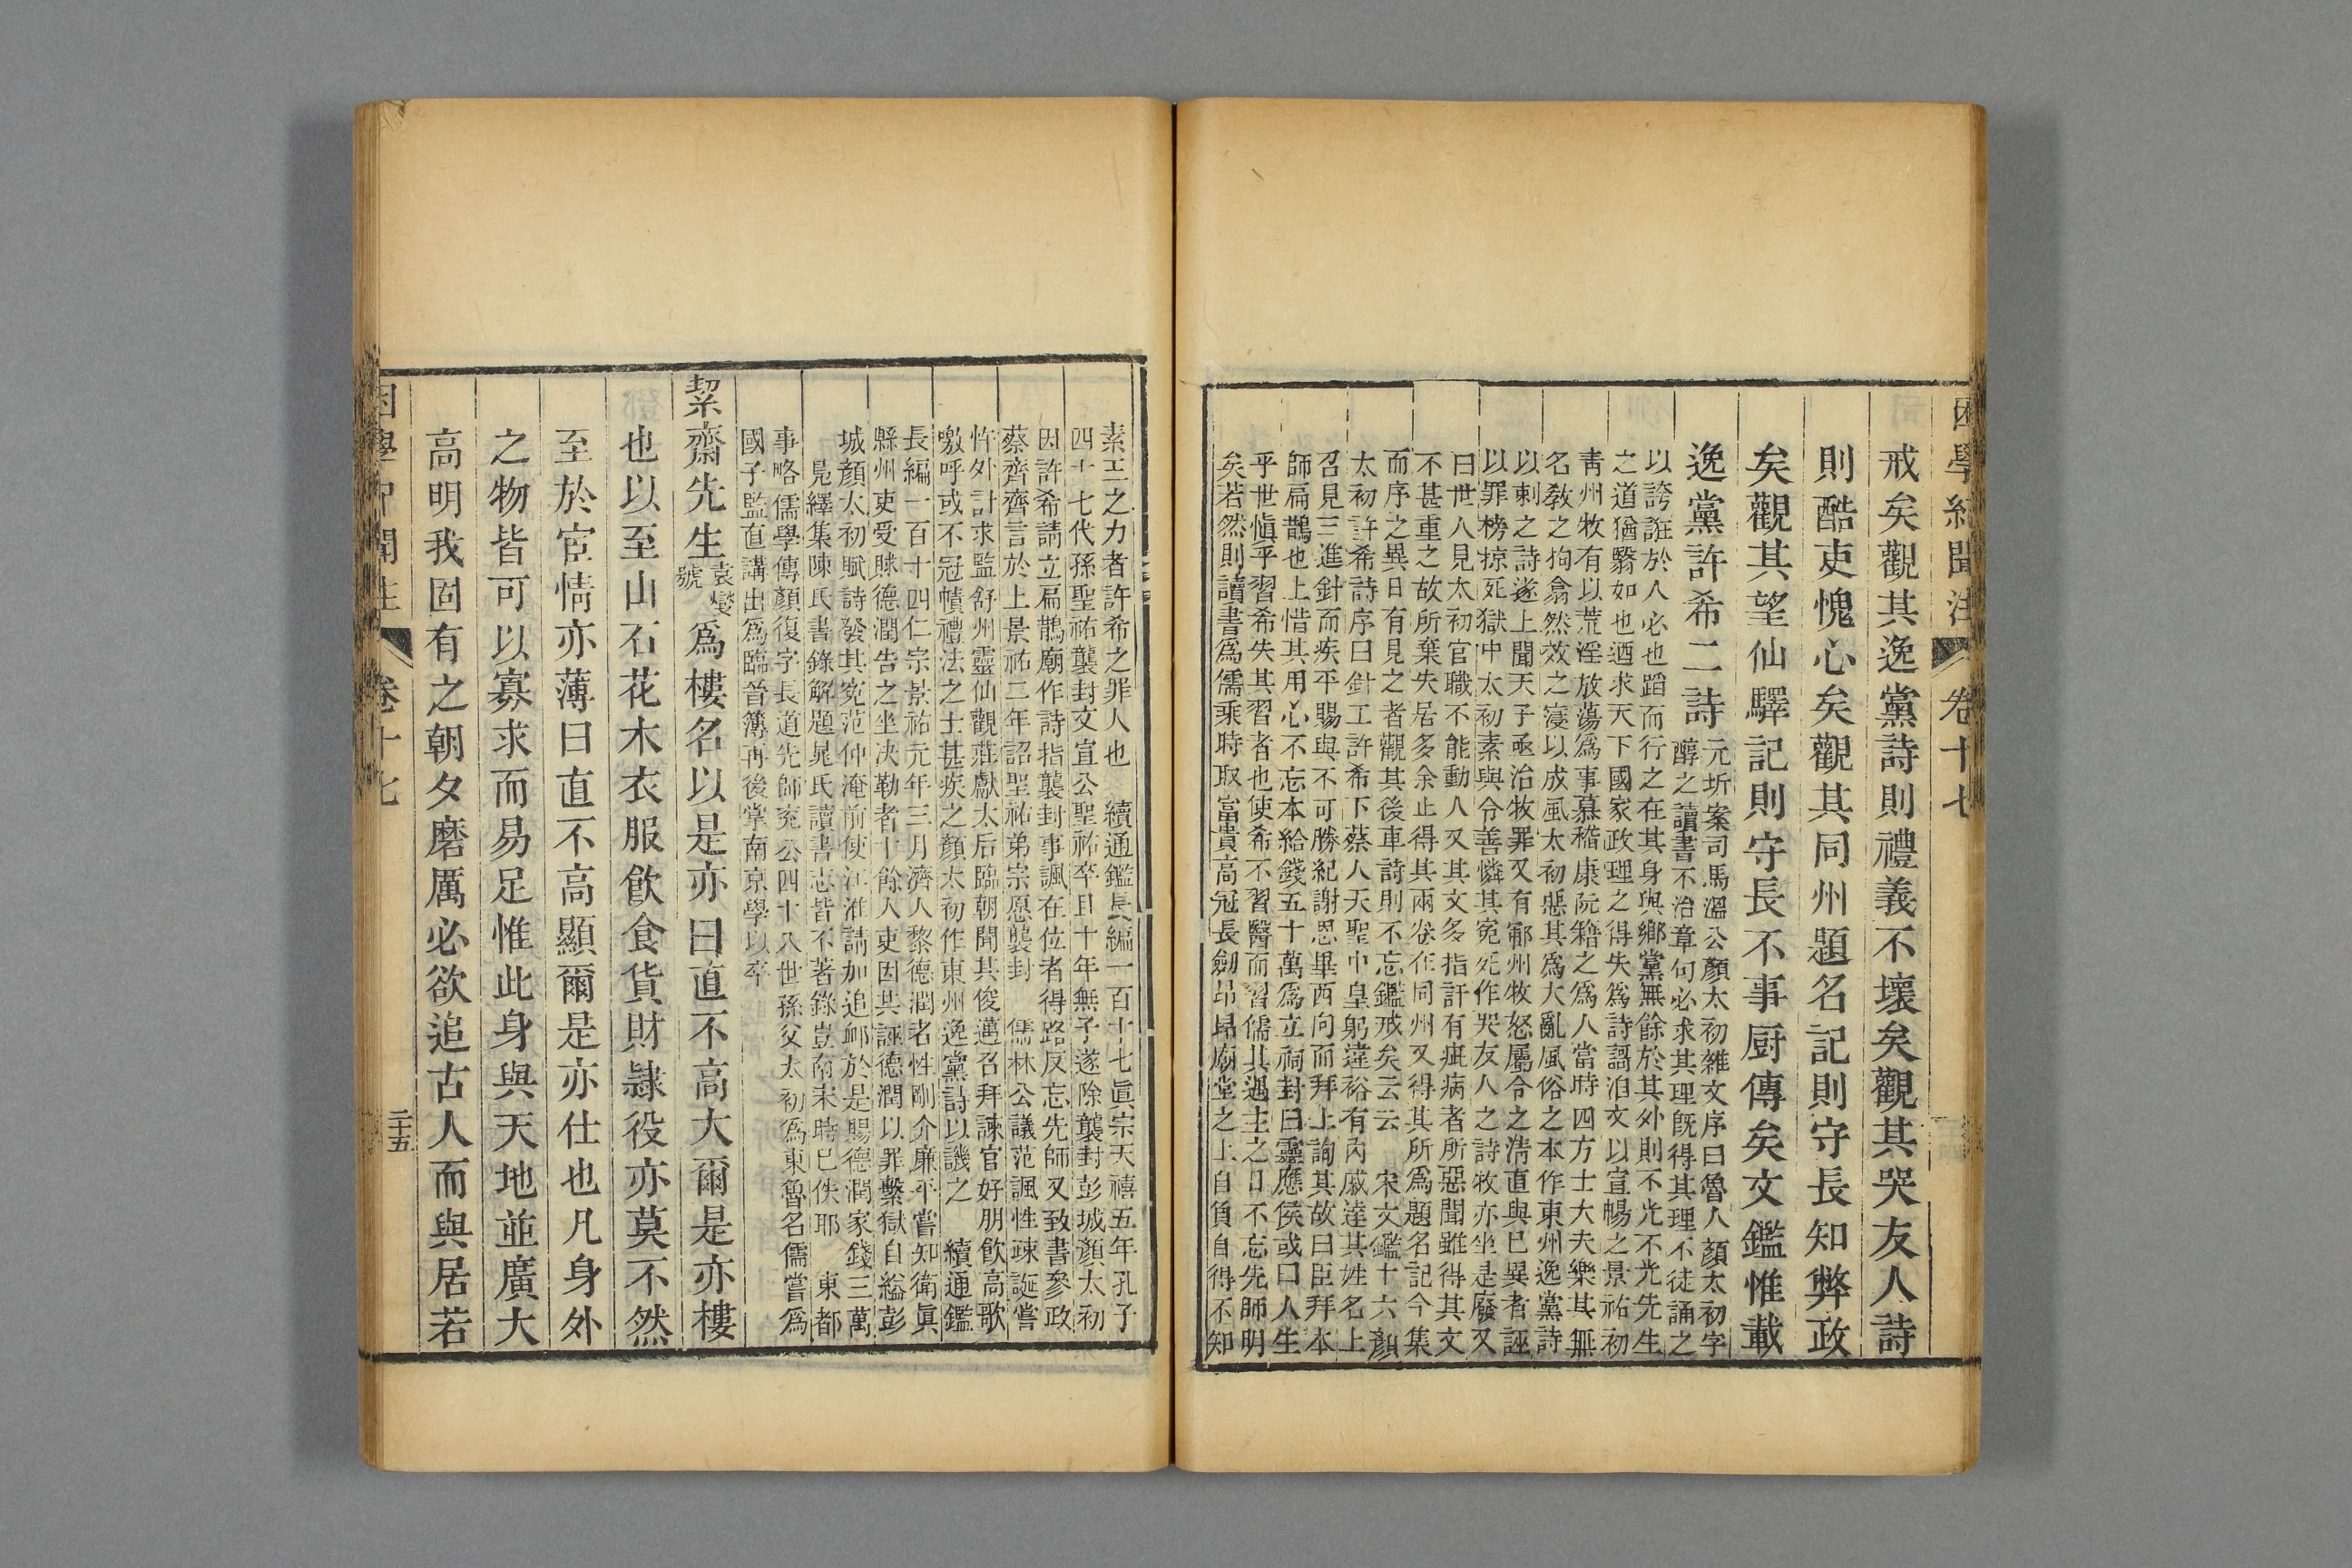 困學紀聞注 卷十七
戒矣觀其逸黨詩則禮義不壞矣觀其哭友人詩
則酷吏愧心矣觀其同州題名記則守長知弊政
矣觀其望仙驛記則守長不事厨傳矣文鑑惟載
逸黨許希二詩
元圻案司馬溫公顏太初雜文序曰魯人顏太初字
醇之讀書不治章句必求其理旣得其理不徒誦之
以誇誑於人必也蹈而行之在其身與鄉黨無餘於其外則不光不光先生
之道猶翳如也迺求天下國家政理之得失爲詩謌洎文以宣暢之景祐初
青州牧有以荒淫放蕩爲事慕稽康阮籍之爲人當時四方士大夫樂其無
名敎之拘翕然效之寖以成風太初惡其爲大亂風俗之本作東州逸黨詩
以刺之詩遂上聞天子亟治牧罪又有鄆州牧怒屬令之淸直與已異者誣
以罪榜掠死獄中太初素與令善憐其寃死作哭友人之詩牧亦坐是廢又
曰世人見太初官職不能動人又其文多指訐有疵病者所惡聞雖得其文
不甚重之故所棄失居多余止得其兩卷在同州又得其所爲題名記今集
而序之異日有見之者觀其後車詩則不忘鑑戒矣云云 宋文鑑十六顏
太初許希詩序曰針工許希下蔡人天聖中皇躬違裕有內戚達其姓名上
召見三進針而疾平賜與不可勝紀謝恩畢西向而拜上詢其故曰臣拜本
師扁鵲也上惜其用心不忘本給錢五十萬爲立祠封曰靈應侯或曰人生
乎世愼乎習希失其習者也使希不習醫而習儒其遇主之日不忘先師明
矣若然則讀書爲儒乘時取富貴高冠長劒昂昂廟堂之上自負自得不知
素王之力者許希之罪人也 續通鑑長編一百十七眞宗天禧五年孔子
四十七代孫聖祐襲封文宣公聖祐卒且十年無子遂除襲封彭城顏太初
因許希請立扁鵲廟作詩指襲封事諷在位者得路反忘先師又致書參政
蔡齊齊言於上景祐二年詔聖祐弟宗愿襲封 儒林公議范諷性疎誕嘗
忤外計求監舒州靈仙觀莊獻太后臨朝聞其俊邁召拜諫官好朋飮高歌
嗷呼或不冠幘禮法之士甚疾之顏太初作東州逸黨詩以譏之 續通鑑
長編一百十四仁宗景祐元年三月濟人黎德潤者性剛介廉平嘗知衛眞
縣州吏受賕德潤告之坐决勒者十餘人吏因共誣德潤以罪繫獄自縊彭
城顏太初賦詩發其寃范仲淹前使江淮請加追卹於是賜德潤家錢三萬
晁繹集陳氏書錄解題晁氏讀書志皆不著錄豈南宋時已佚耶 東都
事略儒學傳顏復字長道先師兖公四十八世孫父太初爲東魯名儒嘗爲
國子監直講出爲臨晉簿再後掌南京學以卒
絜齋先生
袁燮
號
爲樓名以是亦曰直不高大爾是亦樓
也以至山石花木衣服飮食貨財隷役亦莫不然
至於宦情亦薄曰直不高顯爾是亦仕也凡身外
之物皆可以寡求而易足惟此身與天地並廣大
高明我固有之朝夕磨厲必欲追古人而與居若
卷十七
二十五